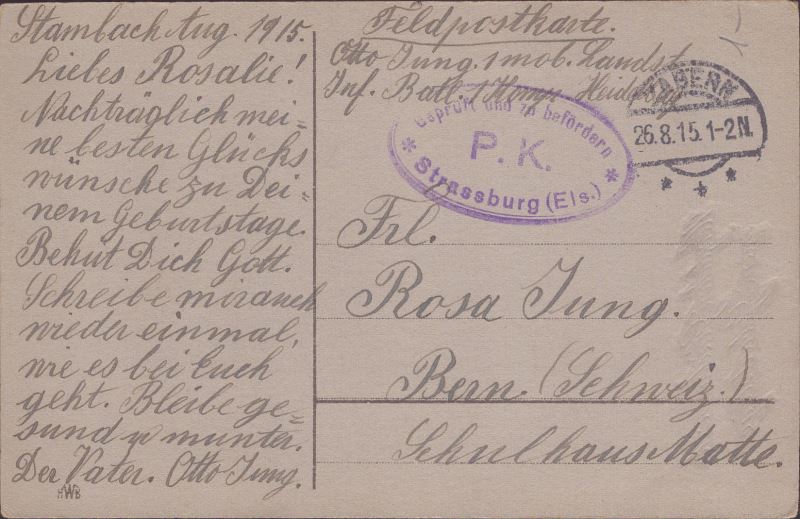 Stambach Aug. 1915.
Liebes Rosalie!
Nachträglich mei-
ne besten Glücks
wünsche zu Dei-
nem Geburtstage.
Behüt Dich Gott.
Schreibe mir auch
wieder einmal,
wie es bei Euch
geht. Bleibe ge-
sund u munter.
Der Vater. Otto Jung.
Feldpostkarte.
Otto Jung. 1 mob. Landst.
Inf. Batl. 1 Komp. Heidelbg
ZABERN
26.8.15.1-2N.
Geprüft und zu befördern
P. K.
Strassburg (Els.)
Frl.
Rosa Jung.
Bern. (Schweiz.)
Schulhaus Matte.